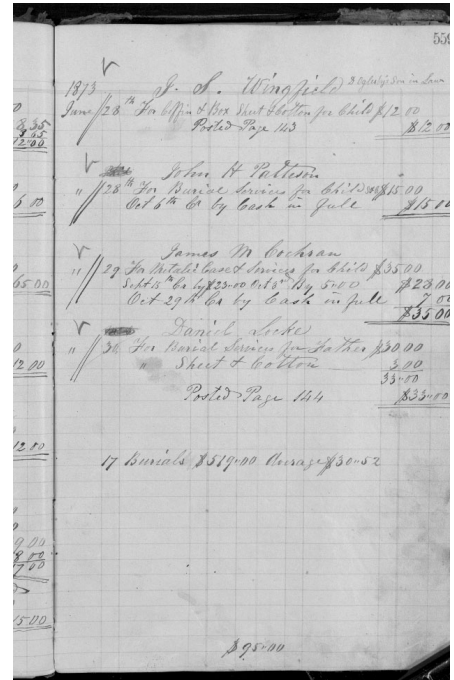 559
1873 J. S. Wingfield
June 28th For Coffin & Box Sheet & Cotton for Child $12.00
Posted Page 143 $12.00
John H Patteson
" 28th For Burial Services for Child $15.00
Oct 6th Cr by Cash in full $15.00
James M Cochran
" 29 For Metalic Case & Services for Child $35.00
Sept 15th Cr by $23=00 Oct 3rd By 5=00 $28=00
Oct 29th Cr by Cash in full 7.00
$35.00
Daniel Locke
" 30 For Burial Services for Father $30.00
" Sheet & Cotton 3.00
33=00
Posted Page 144 $33=00
17 Burials $519=00 Average $30=52
$95=00
8.35
3.65
12.00
5.00
65.00
12.00
12.00
9.00
8.00
7.00
15.00